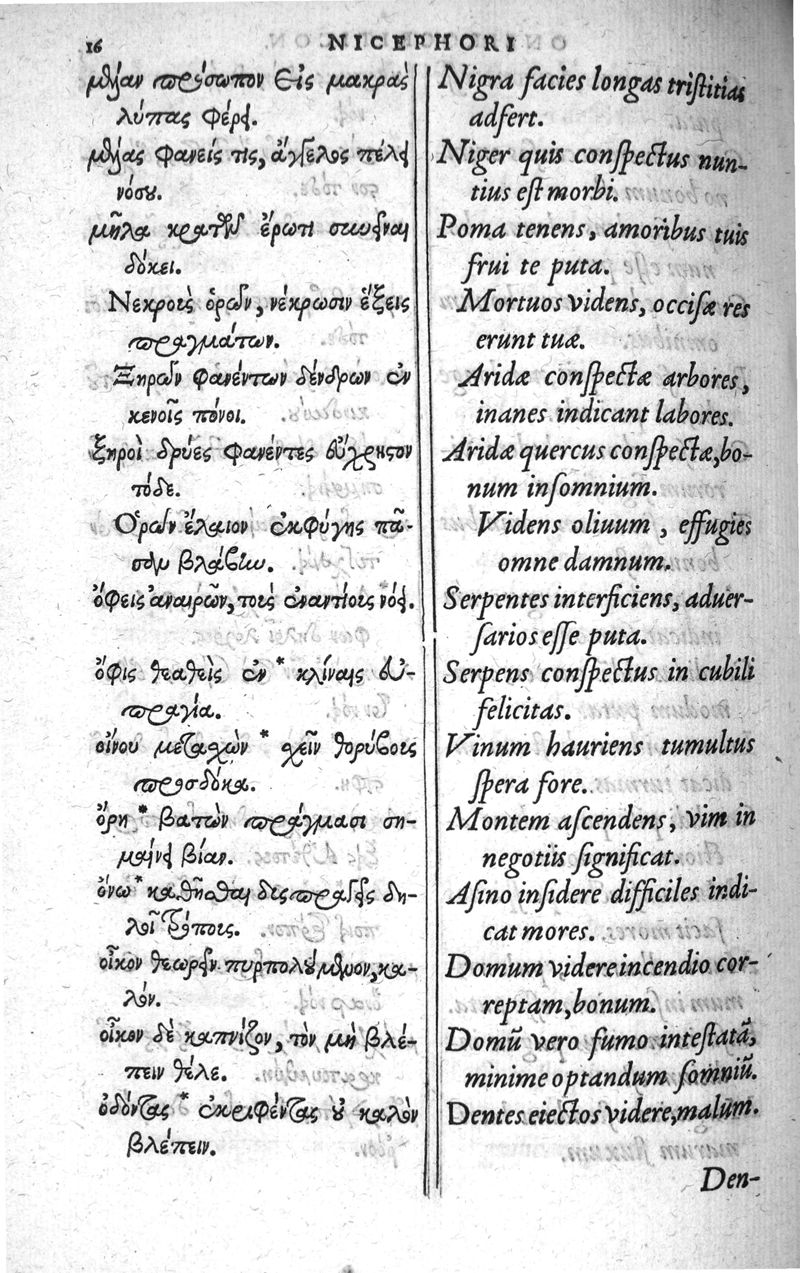 16 NICEPHORI
μέλαν πρόσωπον εἰς μακρὰς
λύπας φέρει.
μέλας φανείς τις, ἄγγελος πέλει
νόσου.
μῆλα κρατῶν ἔρωτι συνεῖναι
δόκει.
Νεκροὺς ὁρῶν, νέκρωσιν ἕξεις
πραγμάτων.
Ξηρῶν φανέντων δένδρων ἐν
κενοῖς πόνοι.
ξηροὶ δρύες φανέντες εὔχρηστον
τόδε.
Ὁρῶν ἔλαιον ἐκφύγῃς πᾶ-
σαν βλάβην.
ὄφεις ἀναιρῶν, τοὺς ἐναντίους νόει.
ὄφις θεαθεὶς ἐν * κλίναις εὐ-
πραγία.
οἴνου μετασχὼν * χεῖν θορύβους
προσδόκα.
ὄρη * βατῶν πράγμασι ση-
μαίνει βίαν.
ὄνῳ * καθῆσθαι δυσπραγεῖς δη-
λοῖ τρόπους.
οἶκον θεωρεῖν πυρπολούμενον, κα-
λόν.
οἶκον δὲ καπνίζον, τὸν μὴ βλέ-
πειν θέλε.
ὀδόντας * ἐκριφέντας οὐ καλὸν
βλέπειν.
Nigra facies longas triſtitias
adfert.
Niger quis conſpectus nun-
tius eſt morbi.
Poma tenens, amoribus tuis
frui te puta.
Mortuos videns, occiſæ res
erunt tuæ.
Aridæ conſpectæ arbores,
inanes indicant labores.
Aridæ quercus conſpectæ, bo-
num inſomnium.
Videns oliuum, effugies
omne damnum.
Serpentes interficiens, aduer-
ſarios eſſe puta.
Serpens conſpectus in cubili
felicitas.
Vinum hauriens tumultus
ſpera fore.
Montem aſcendens, vim in
negotiis ſignificat.
Aſino inſidere difficiles indi-
cat mores.
Domum videre incendio cor-
reptam, bonum.
Domũ vero fumo inteſtatã,
minime optandum ſomniũ.
Dentes eiectos videre, malum.
Den-